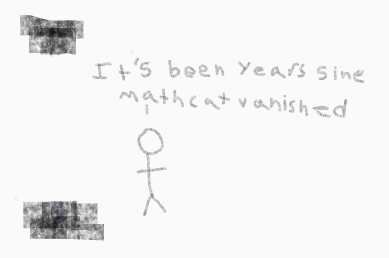 It's been years sine
mathcat vanished